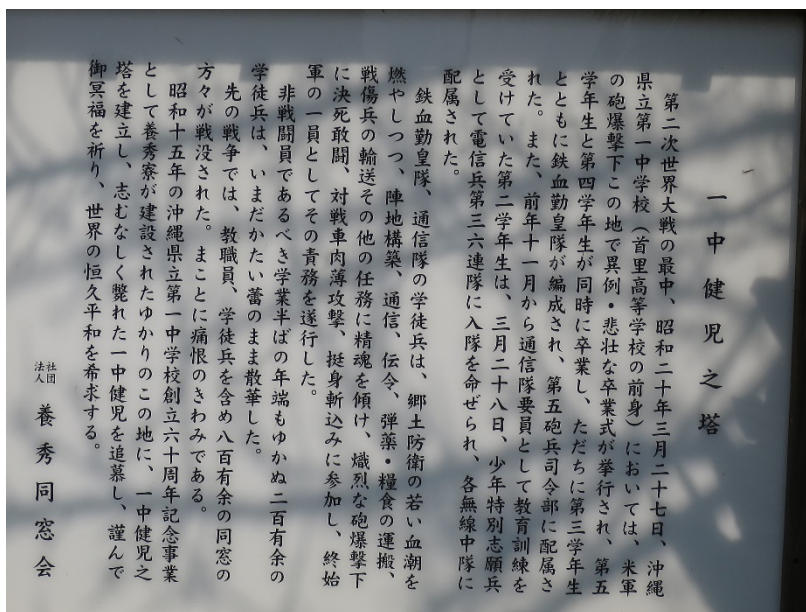 一中健児之塔
第二次世界大戦の最中、昭和二十年三月二十七日、沖縄
県立第一中学校（首里高等学校の前身）においては、米軍
の砲爆撃下この地で異例・悲壮な卒業式が挙行され、第五
学年生と第四学年生が同時に卒業し、ただちに第三学年生
とともに鉄血勤皇隊が編成され、第五砲兵司令部に配属さ
れた。また、前年十一月から通信隊要員として教育訓練を
受けていた第二学年生は、三月二十八日、少年特別志願兵
として電信兵第三六連隊に入隊を命ぜられ、各無線中隊に
配属された。
鉄血勤皇隊、通信隊の学徒兵は、郷土防衛の若い血潮を
燃やしつつ、陣地構築、通信、伝令、弾薬・糧食の運搬、
戦傷兵の輸送その他の任務に精魂を傾け、熾烈な砲爆撃下
に決死敢闘、対戦車肉薄攻撃、挺身斬込みに参加し、終始
軍の一員としてその責務を遂行した。
非戦闘員であるべき学業半ばの年端もゆかぬ二百有余の
学徒兵は、いまだかたい蕾のまま散華した。
先の戦争では、教職員、学徒兵を含め八百有余の同窓の
方々が戦没された。まことに痛恨のきわみである。
昭和十五年の沖縄県立第一中学校創立六十周年記念事業
として養秀寮が建設されたゆかりのこの地に、一中健児之
塔を建立し、志むなしく斃れた一中健児を追慕し、謹んで
御冥福を祈り、世界の恒久平和を希求する。
社団法人 養秀同窓会